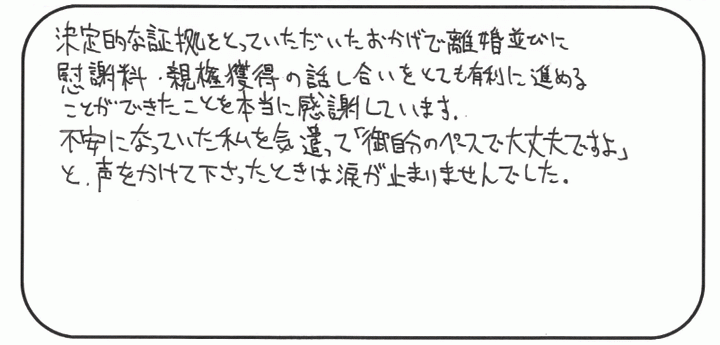 決定的な証拠をとっていただいたおかげで離婚並びに
慰謝料・親権獲得の話し合いをとても有利に進める
ことができたことを本当に感謝しています.
不安になっていた私を気遣って「御自分のペースで大丈夫ですよ」
と、声をかけて下さったときは涙が止まりませんでした。